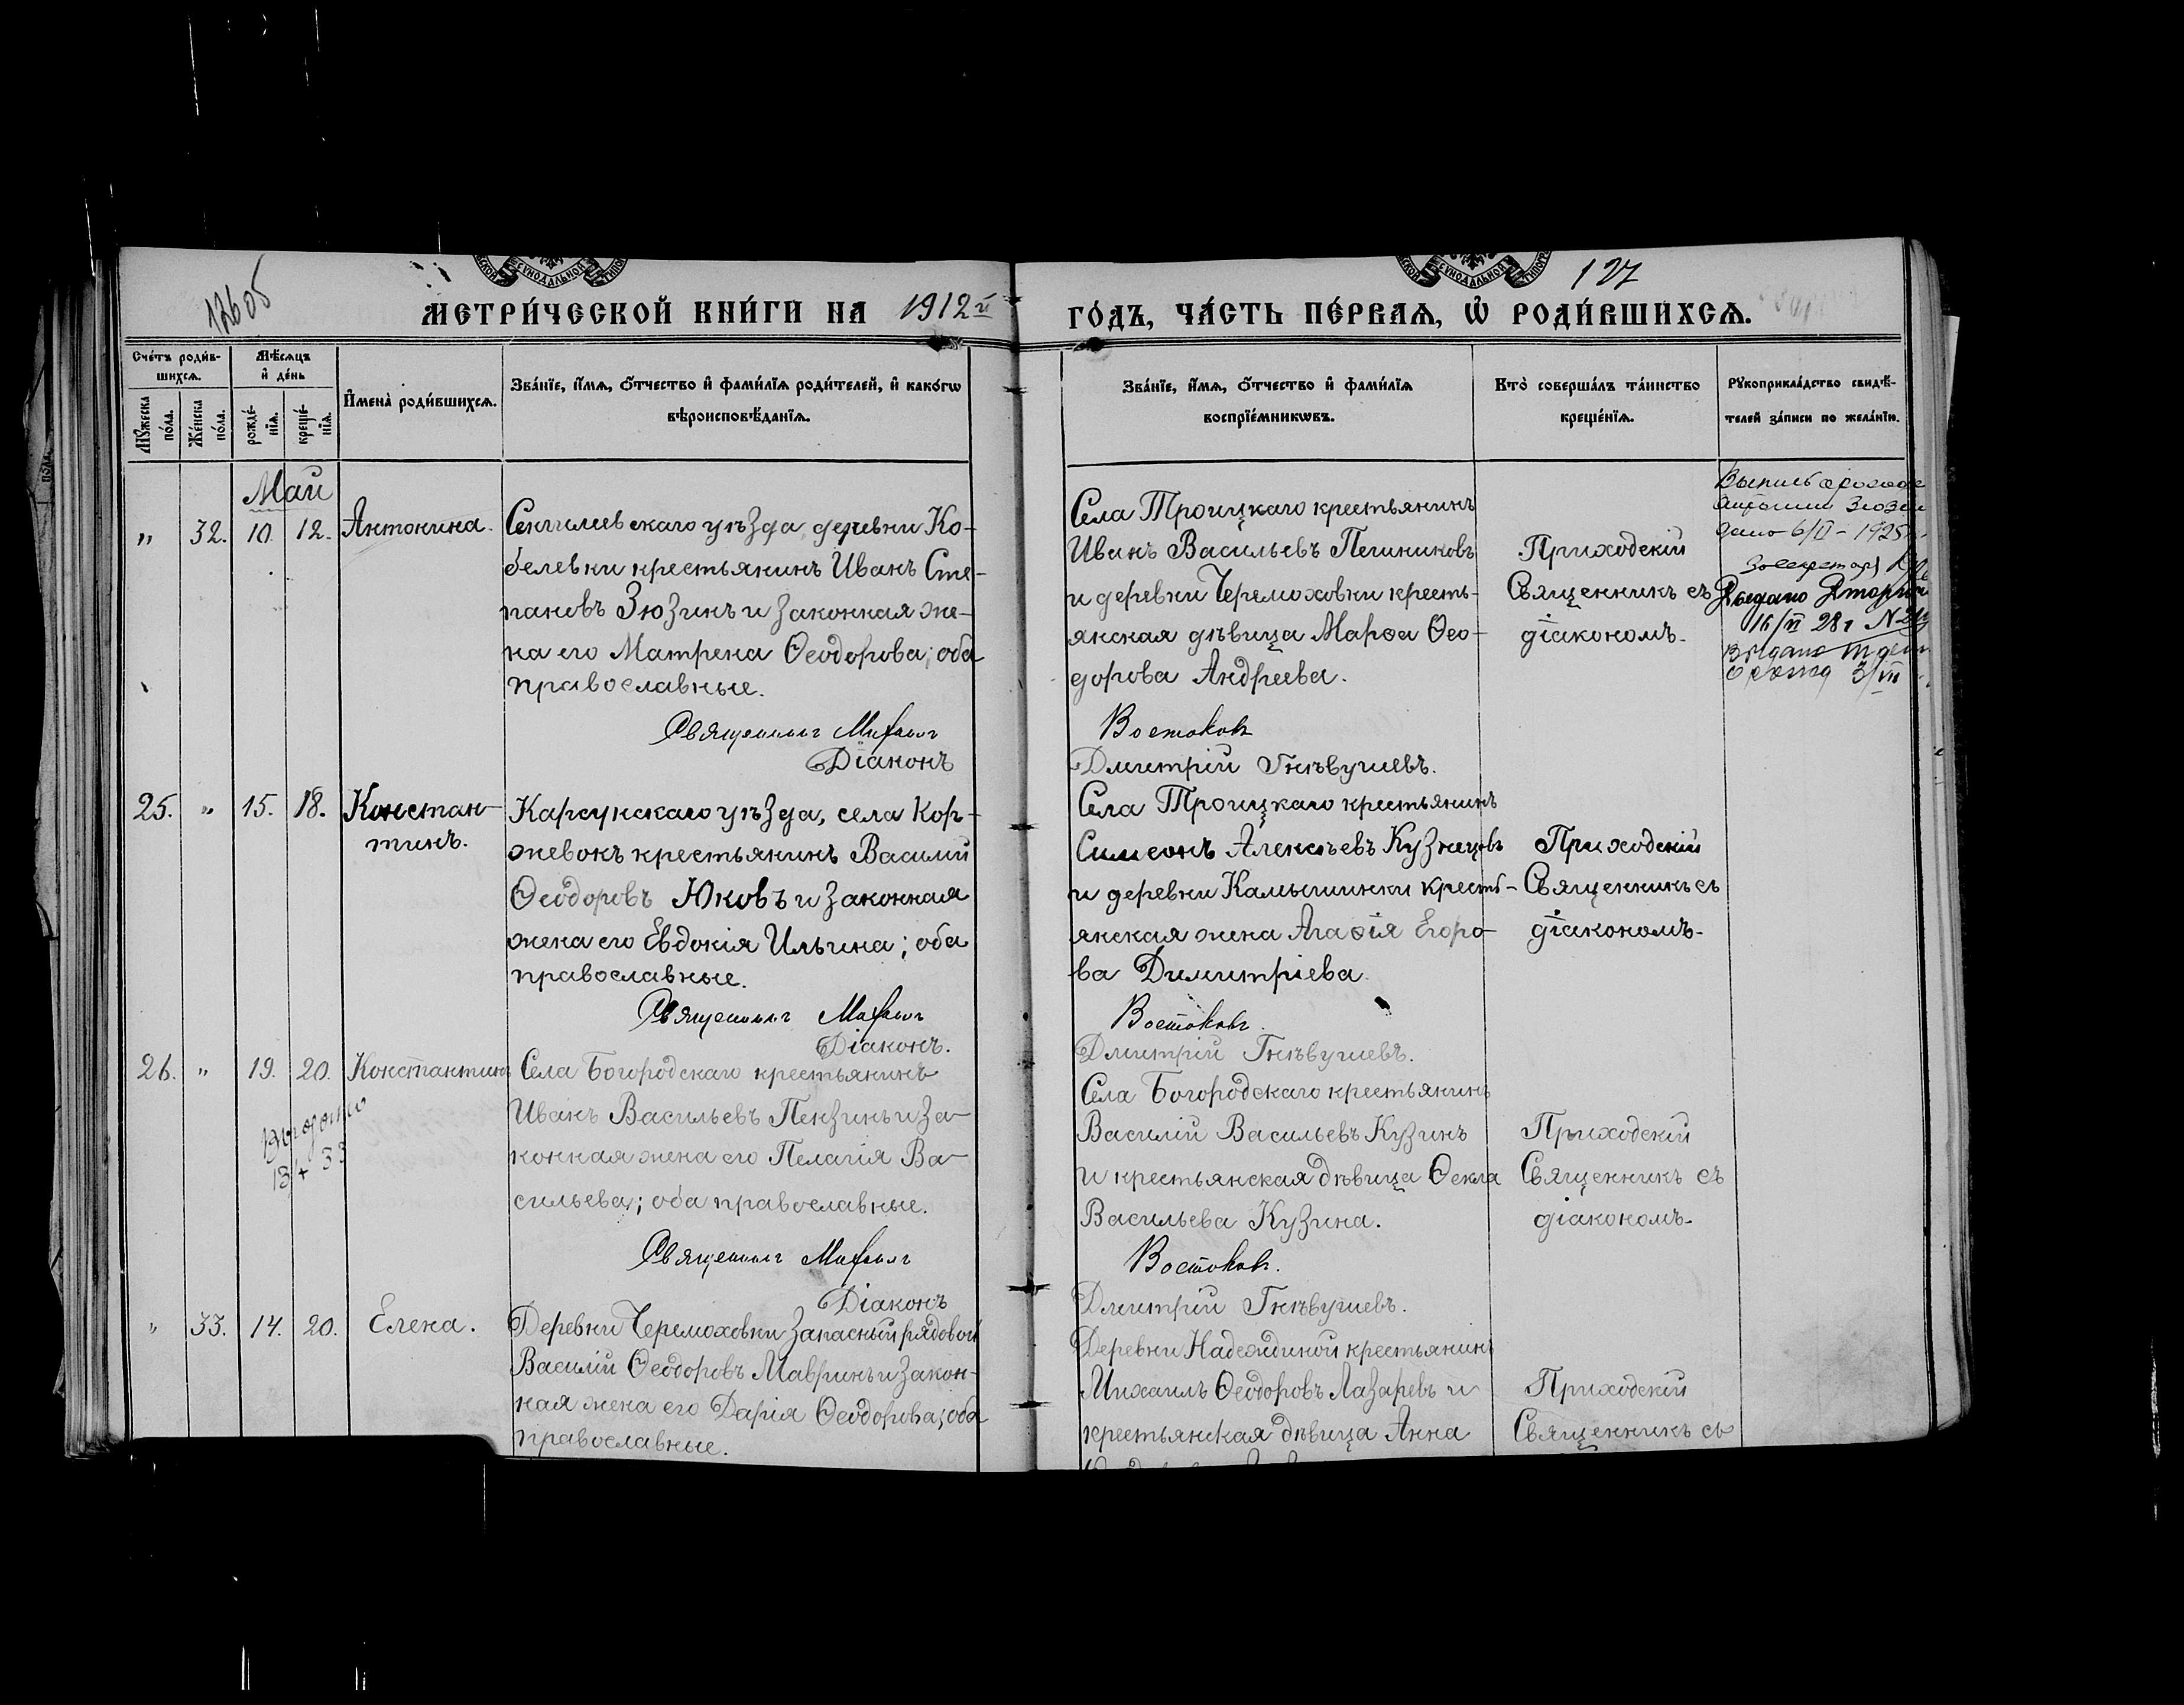 12605
127
МЕТРИ́ЧЕСКОЙ КНИ́ГИ НА 1912й
ГО́ДЪ, ЧА́СТЬ ПЕ́РВАѦ, Ѡ҆ РОДИ́ВШИХСѦ.
Сче́тъ роди́в-
шихсѧ.
Мѣ́сѧцъ
и҆ де́нь
Мꙋ́жеска
по́ла.
Же́нска
по́ла.
рожде́-
нїѧ.
креще́-
нїѧ.
И҆мена̀ роди́вшихсѧ.
Зва́нїе, и҆́мѧ, ѻ҆́тчество и҆ фами́лїѧ роди́телей, и҆ како́гѡ
вѣроисповѣ́данїѧ.
Зва́нїе, и҆́мѧ, ѻ҆́тчество и҆ фами́лїѧ
воспрїе́мникѡвъ.
Кто̀ соверша́лъ та́инство
креще́нїѧ.
Рꙋкоприкла́дство свидѣ́-
телей за́писи по жела́нїю.
Май
" 32. 10. 12. Антонина.
Сенгилеевскаго уѣзда, деревни Ко-
белевки крестьянинъ Иванъ Сте-
пановъ Зюзинъ и законная же-
на его Матрена Ѳеодорова; оба
православные.
Священникъ Михаилъ
Діаконъ
Села Троицкаго крестьянинъ
Иванъ Васильевъ Пешниковъ
и деревни Черемоховки кресть-
янская дѣвица Марѳа Ѳео-
дорова Андреева.
Востоковъ
Дмитрій Гнѣвушевъ.
Приходскій
Священникъ съ
діакономъ.
дано 6/II - 1925
16/VI 28 г
3/VII
25. " 15. 18. Констан-
тинъ.
Карсунскаго уѣзда, села Кор-
жевокъ крестьянинъ Василій
Ѳеодоровъ Юковъ и законная
жена его Евдокія Ильина; оба
православные.
Священникъ Михаилъ
Діаконъ.
Села Троицкаго крестьянинъ
Симеонъ Алексѣевъ Кузнецовъ
и деревни Камышинки кресть-
янская жена Агаѳія Егоро-
ва Димитріева.
Востоковъ.
Дмитрій Гнѣвушевъ.
Приходскій
Священникъ съ
діакономъ.
26. " 19. 20. Константинъ
13/X 33
Села Богородскаго крестьянинъ
Иванъ Васильевъ Пензинъ и за-
конная жена его Пелагія Ва-
сильева; оба православные.
Священникъ Михаилъ
Діаконъ
Села Богородскаго крестьянинъ
Василій Васильевъ Кузинъ
и крестьянская дѣвица Ѳекла
Васильева Кузина.
Востоковъ.
Дмитрій Гнѣвушевъ.
Приходскій
Священникъ съ
діакономъ.
" 33. 14. 20. Елена.
Деревни Черемоховки запасный рядовой
Василій Ѳеодоровъ Мавринъ и закон-
ная жена его Дарія Ѳеодорова; оба
православные.
Деревни Надеждиной крестьянинъ
Михаилъ Ѳеодоровъ Лазаревъ и
крестьянская дѣвица Анна
Приходскій
Священникъ съ